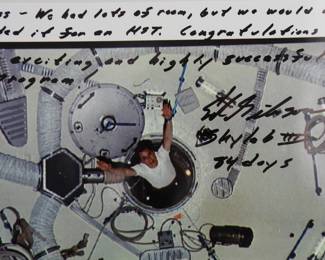 - We had lots of room, but we would
ded it for an HST. Congratulations
exciting and highly successful
program
Ed Gibson
Skylab III
84 days